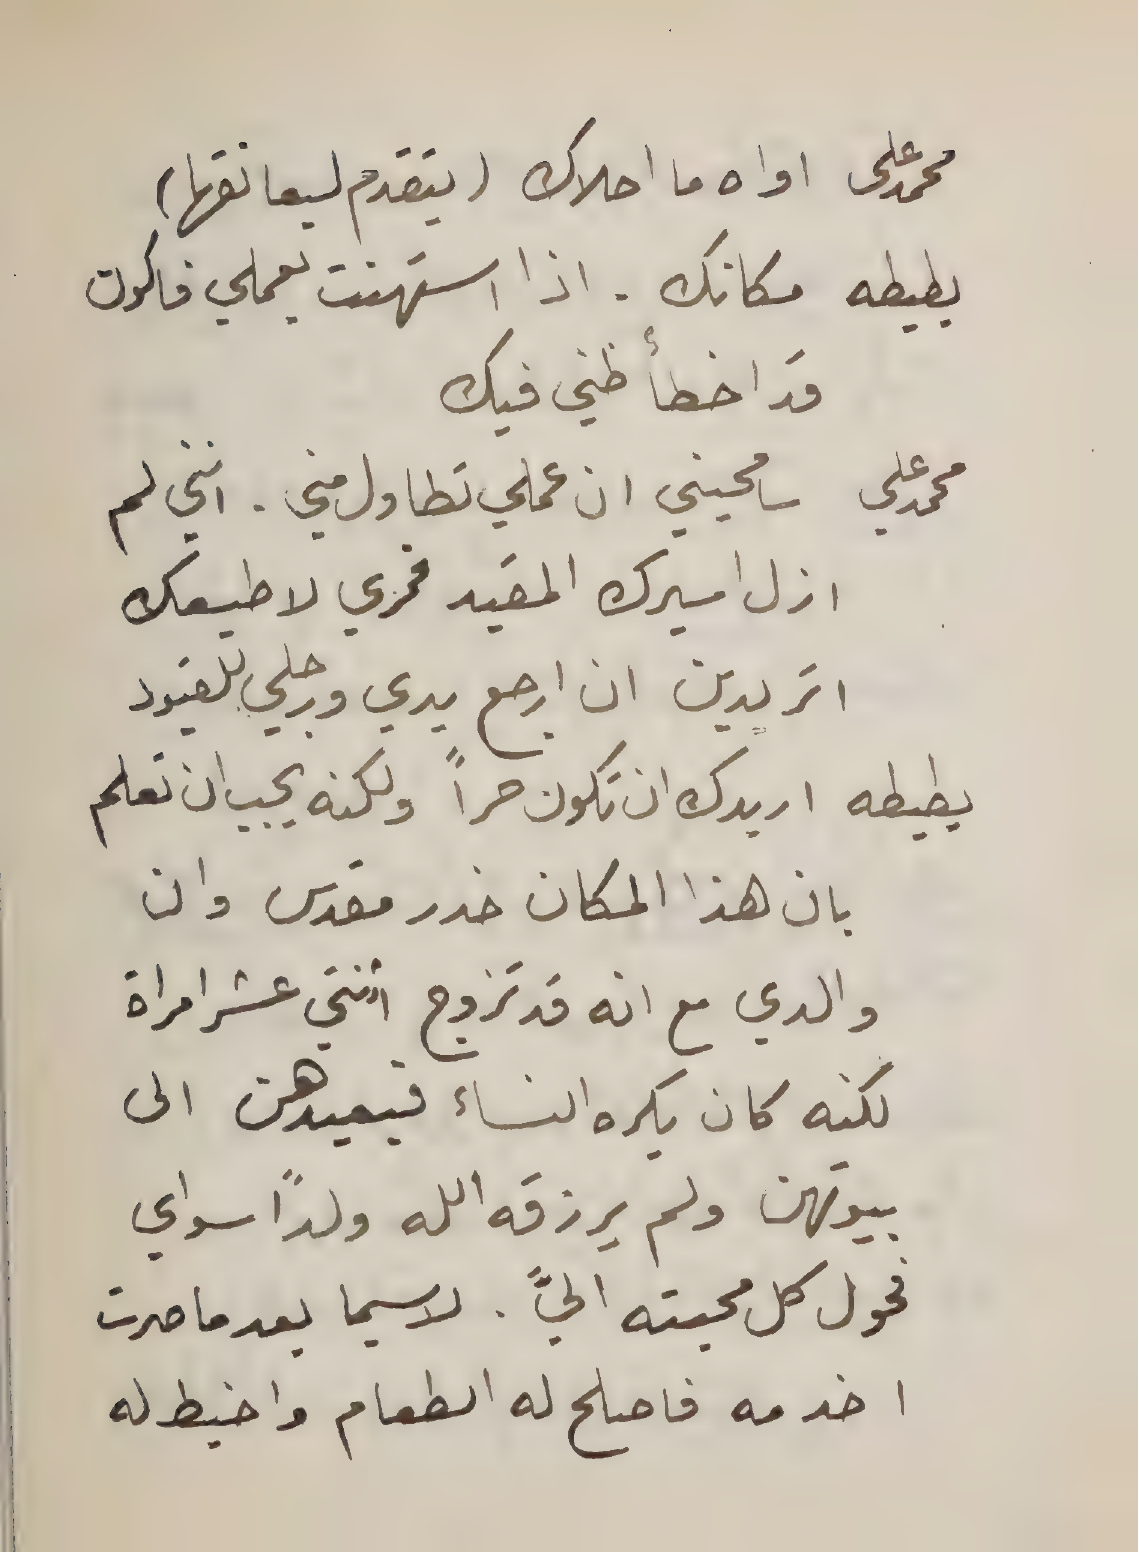 محمد علي اواه ما احلاك (يتقدم ليعانقها)
بطيطه مكانك . اذا استهنت بعملي فاكون
قد اخطأ ظني فيك
محمد علي سامحيني ان عملي تطاول مني . انني لم
ازل اسيرك المقيد فمري لاطيعك
اتريدين ان ارجع يدي ورجلي للقيود
بطيطه اريدك ان تكون حراً ولكنه يجب ان تعلم
بان هذا المكان خدر مقدس وان
والدي مع انه قد تزوج اثنتي عشر امراة
لكنه كان يكره النساء فيعيدهن الى
بيوتهن ولم يرزقه الله ولداً سواي
فحول كل محبته اليَّ . لاسيما بعد ما صرت
اخدمه فاصلح له الطعام واخيط له